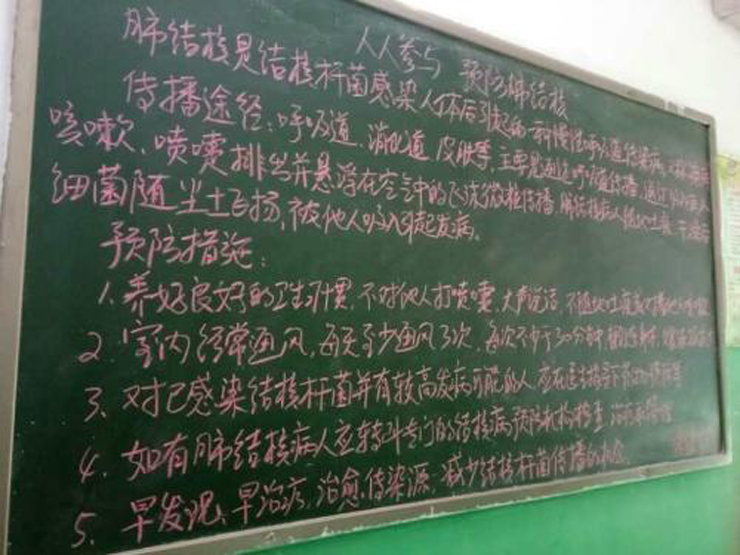 人人参与 预防肺结核
肺结核是结核杆菌感染人体后引起的一种慢性呼吸道传染病
传播途径:呼吸道、消化道、皮肤等,主要是通过呼吸道传播,通过
咳嗽、喷嚏排出并悬浮在空气中的飞沫微粒传播,肺结核病人随地吐痰
细菌随尘土飞扬,被他人吸入引起发病。
预防措施:
1、养好良好的卫生习惯,不对他人打喷嚏、大声说话,不随地吐痰
2、室内经常通风,每天至少通风3次,每次不少于30分钟
3、对已感染结核杆菌并有较高发病可能的人,应在医生指导下
4、如有肺结核病人应转到专门的结核病预防机构检查
5、早发现、早治疗,治愈传染源,减少结核杆菌传播的机会